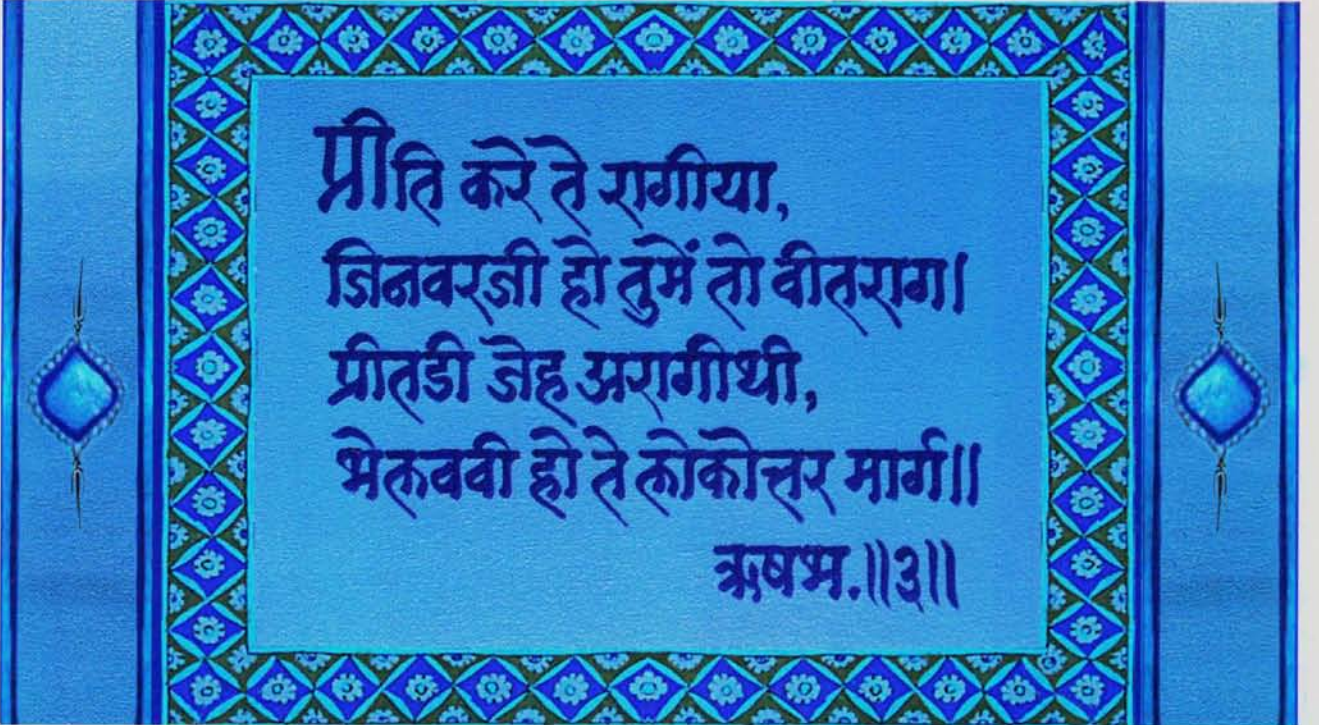 प्रीति करें ते रागीया,
जिनवरजी हो तुमें तो वीतराग।
प्रीतडी जेह अरागीथी,
भेलववी हो ते लोकोत्तर मार्ग॥
ऋषभ.॥३॥